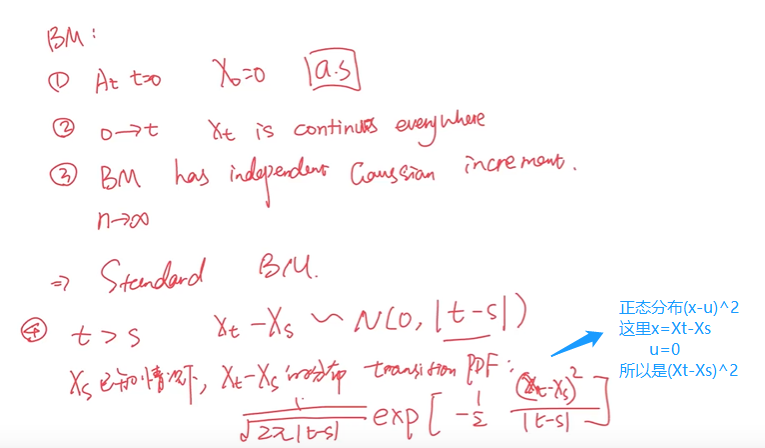 BM:
① At t=0 X₀=0 a.s
② 0→t Xt is continuous everywhere
③ BM has independent Gaussian increment.
n→∞
⇒ Standard BM.
④ t>s Xt-Xs ~ N(0, |t-s|)
Xs已知情况下, Xt-Xs transition PDF:
1/√2π|t-s| exp[-1/2 (Xt-Xs)²/|t-s|]
正态分布(x-u)^2
这里x=Xt-Xs
u=0
所以是(Xt-Xs)^2